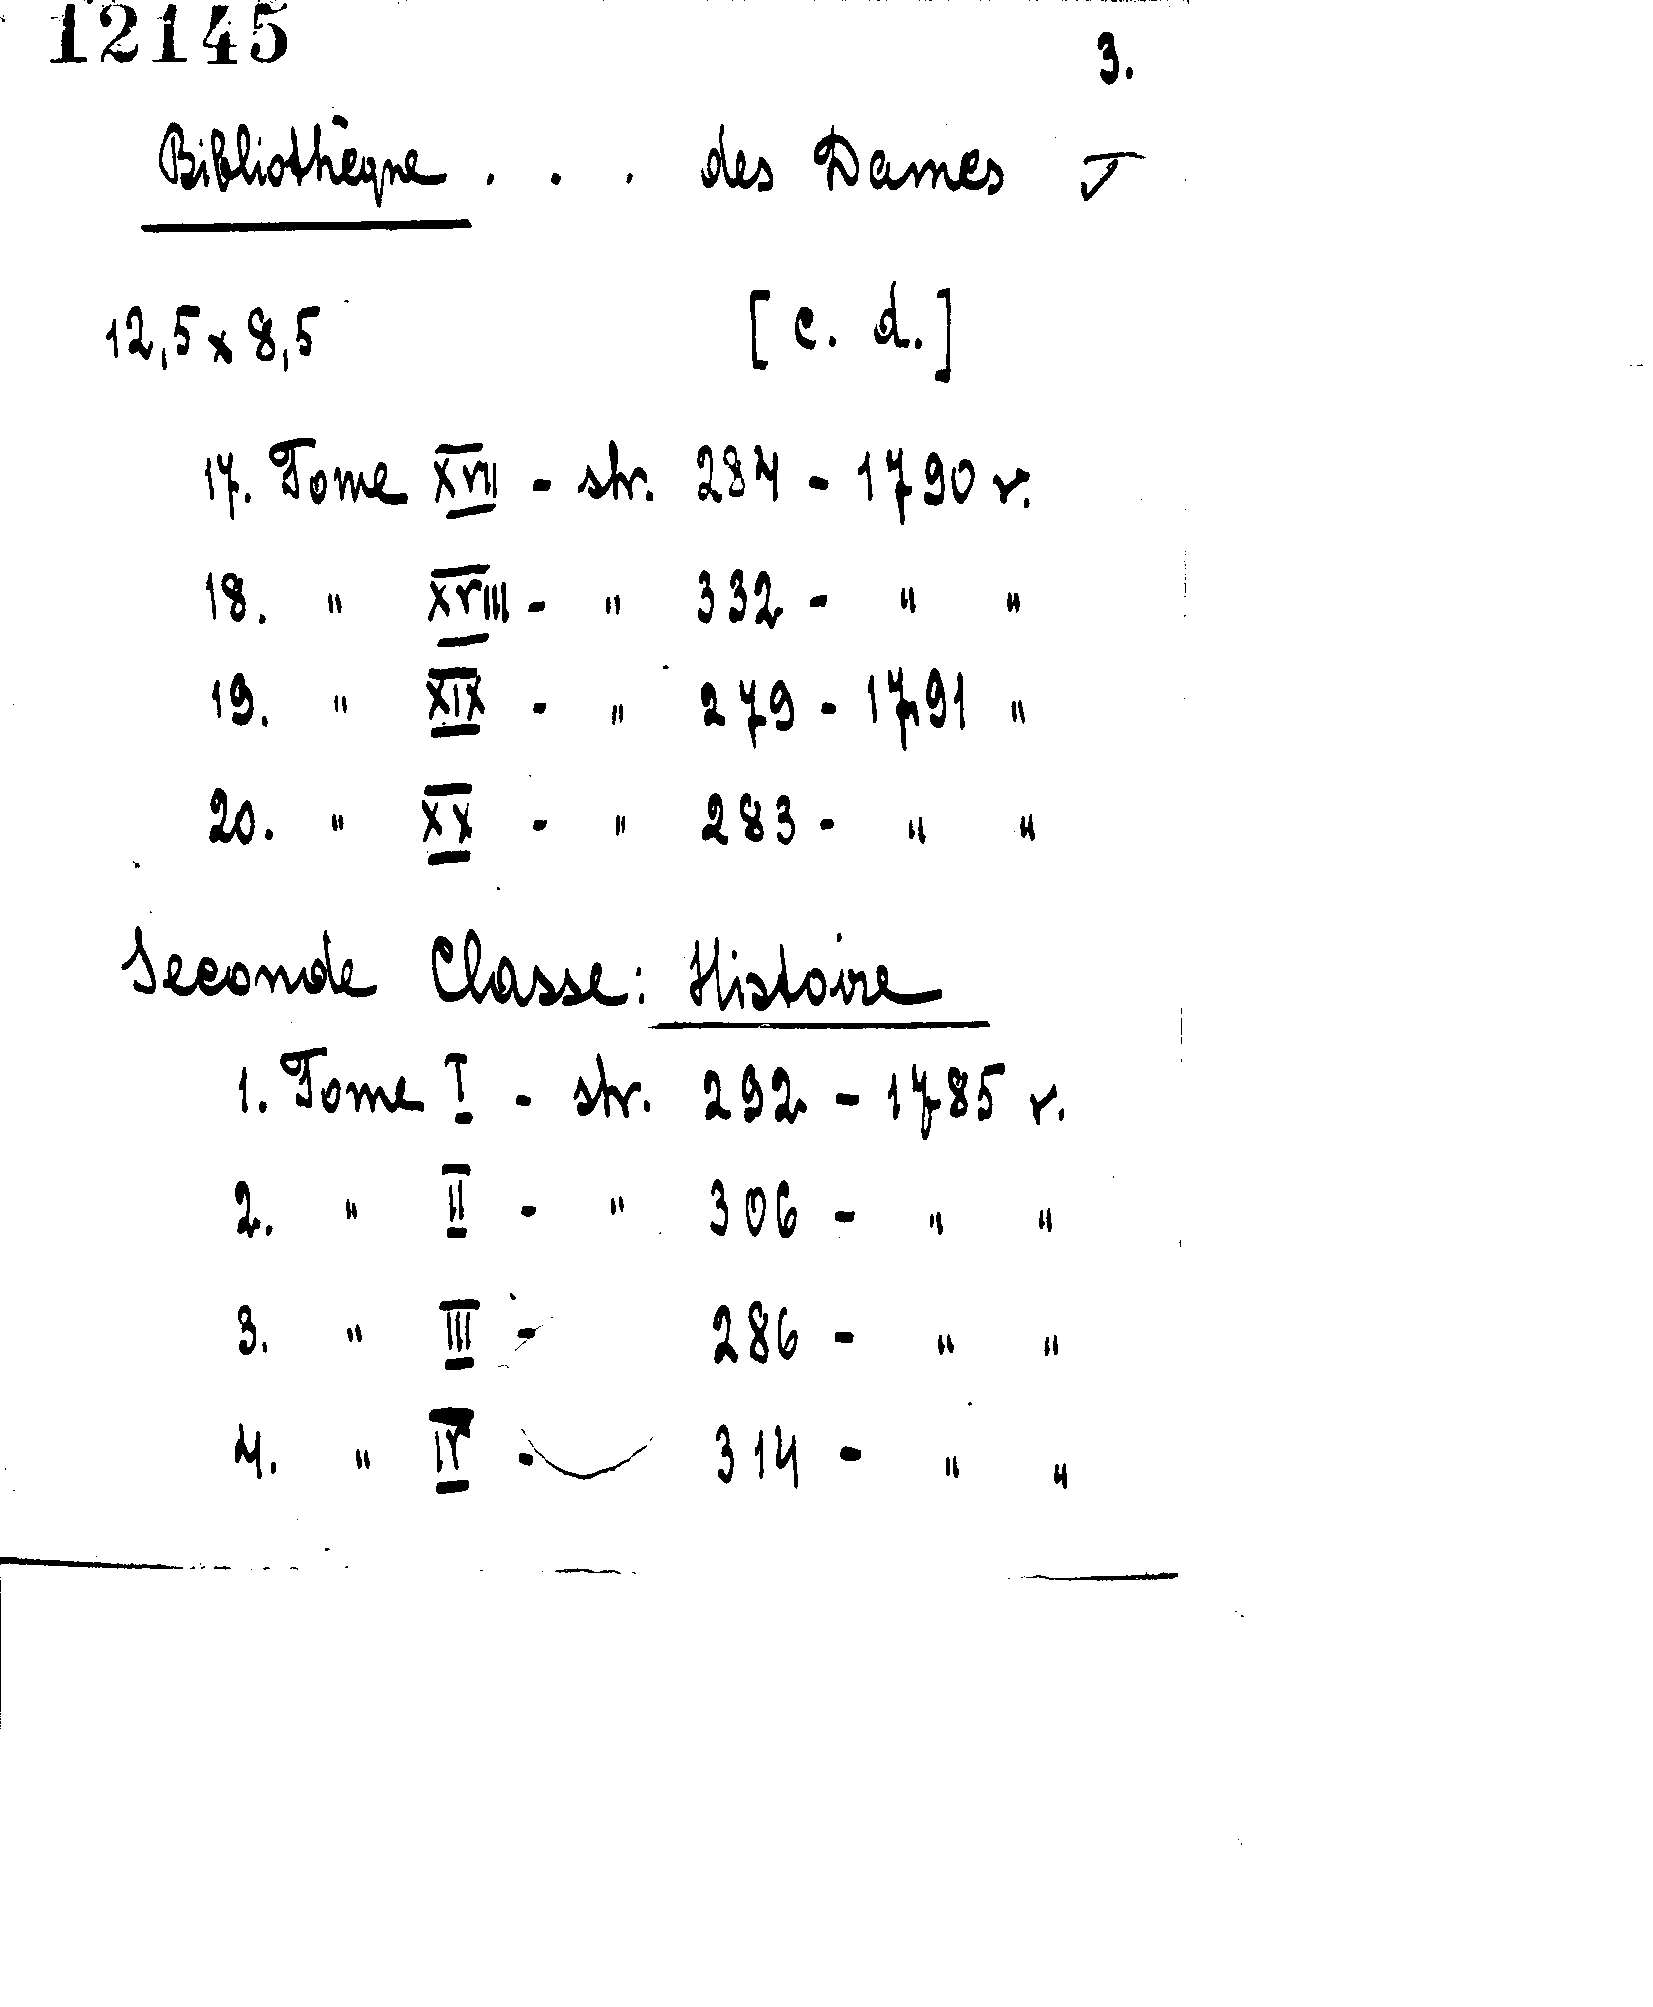 12145
3.
Bibliothèque . . . des Dames
12,5 x 8,5 [c. d.]
17. Tome XVII - str. 284 - 1790 r.
18. " XVIII - " 332 - " "
19. " XIX - " 279 - 1791 "
20. " XX - " 283 - " "
Seconde Classe: Histoire
1. Tome I - str. 292 - 1785 r.
2. " II - " 306 - " "
3. " III - 286 - " "
4. " IV - 314 - " "